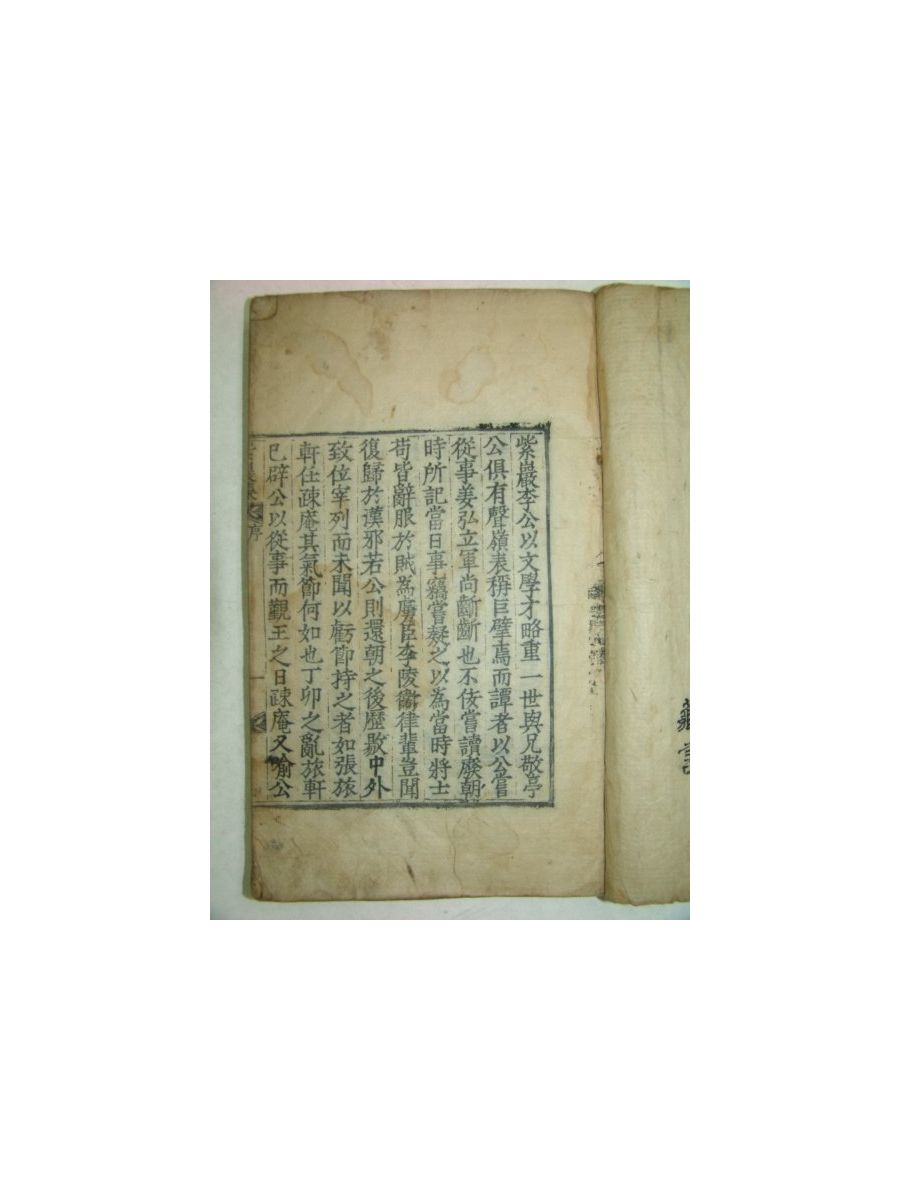 紫巖李公以文學才略重一世與兄敬亭
公俱有聲嶺表稱巨擘焉而譚者以公嘗
從事姜弘立軍尚齗齗也不佞嘗讀廢朝
時所記當日事竊嘗疑之以爲當時將士
苟皆辭服於賊爲虜臣李陵衛律輩豈聞
復歸於漢邪若公則還朝之後歷敭中外
致位宰列而未聞以虧節持之者如張旅
軒任疎庵其氣節何如也丁卯之亂旅軒
已辟公以從事而覲王之日疎庵又喻公
序
一